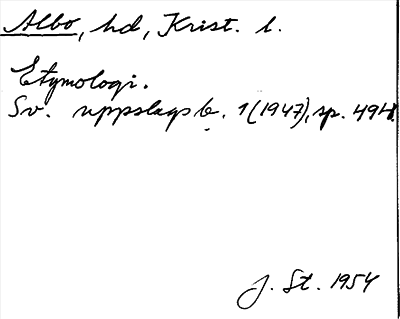 Albo, hd, Krist. l.
Etymologi.
Sv. uppslagsb. 1 (1947), sp. 494.
J. St. 1954